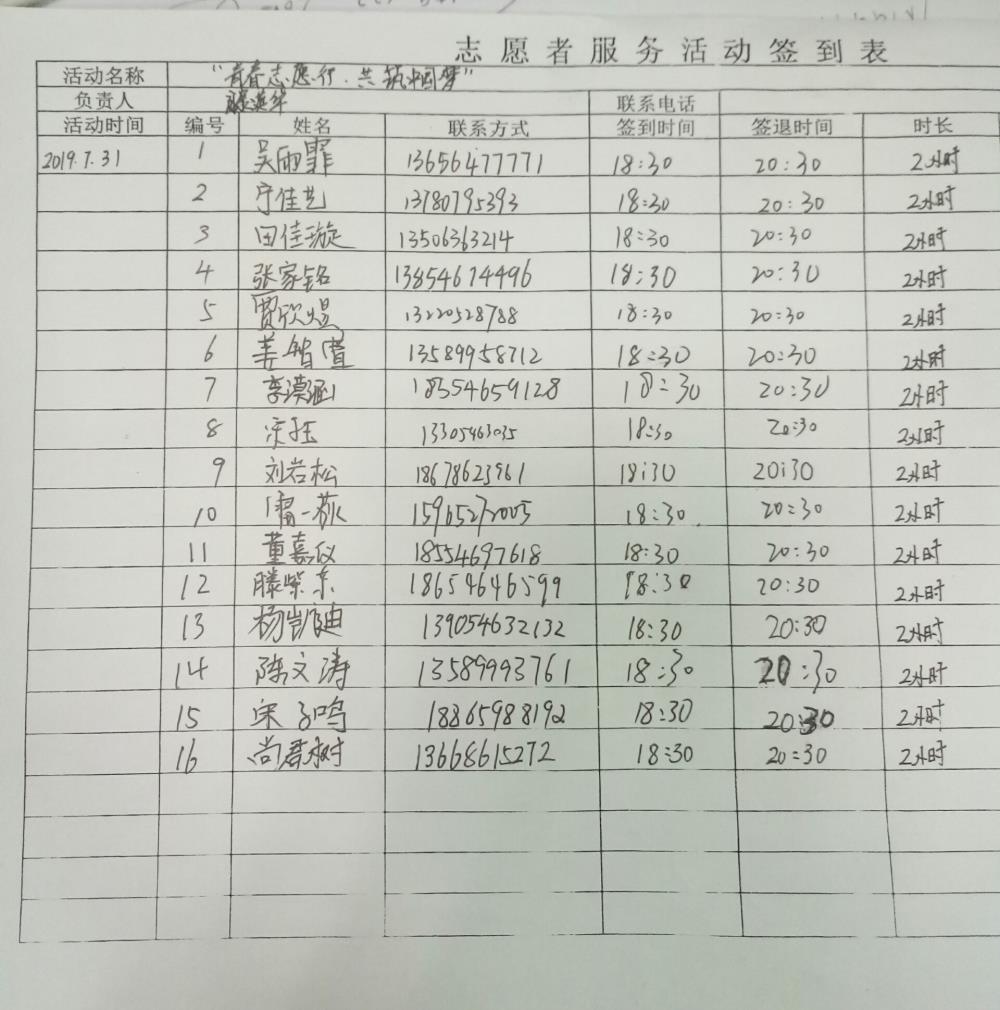 志愿者服务活动签到表
活动名称 "青春志愿行·共筑中国梦"
负责人 联系电话
活动时间 编号 姓名 联系方式 签到时间 签退时间 时长
2019.7.31 1 吴雨霏 13656477771 18:30 20:30 2小时
2 宁佳艺 13780795393 18:30 20:30 2小时
3 田佳璇 13506363214 18:30 20:30 2小时
4 张家铭 13854674496 18:30 20:30 2小时
5 贾欣煜 13220528788 18:30 20:30 2小时
6 姜智萱 13589958712 18:30 20:30 2小时
7 李漠涵 18354659128 18:30 20:30 2小时
8 宋钰 13305463035 18:30 20:30 2小时
9 刘若松 18678623961 18:30 20:30 2小时
10 15965272005 18:30 20:30 2小时
11 董嘉仪 18554697618 18:30 20:30 2小时
12 滕紫东 18654646599 18:30 20:30 2小时
13 杨凯迪 139054632132 18:30 20:30 2小时
14 陈文涛 13589993761 18:30 20:30 2小时
15 宋子鸣 18865988192 18:30 20:30 2小时
16 尚君树 13668615272 18:30 20:30 2小时